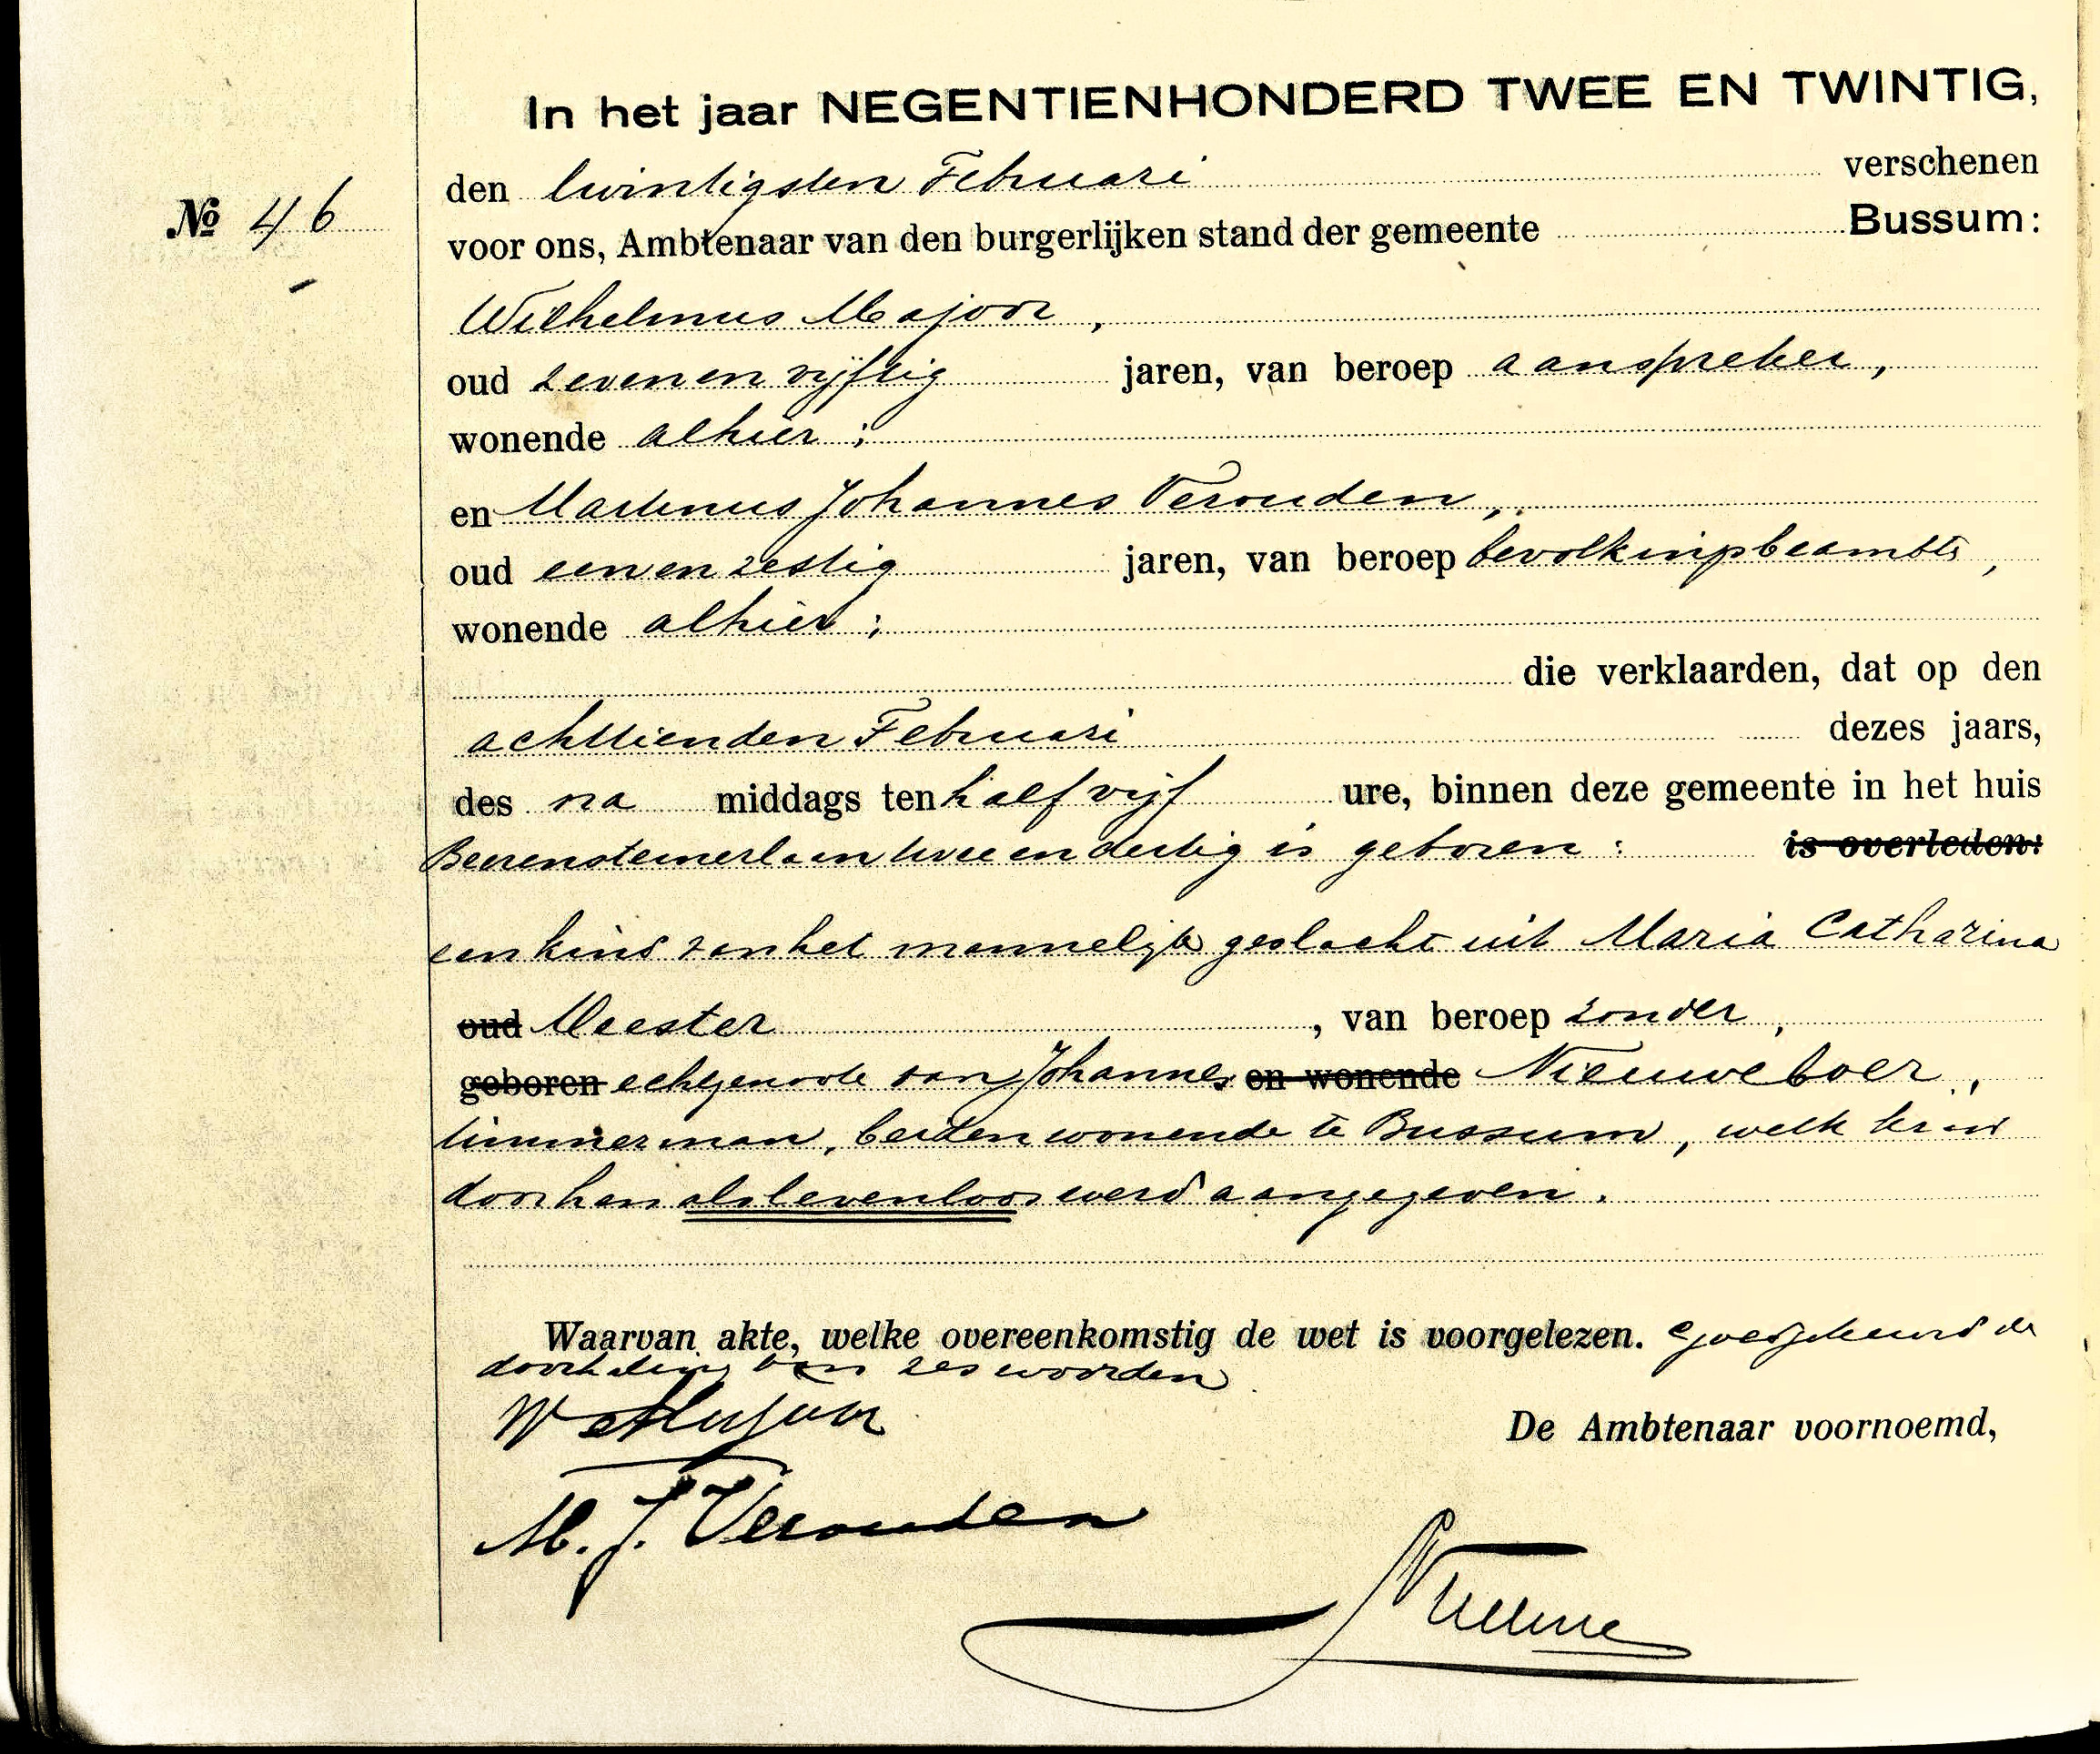 In het jaar NEGENTIENHONDERD TWEE EN TWINTIG,
den twintigsten Februari verschenen
№ 46
voor ons, Ambtenaar van den burgerlijken stand der gemeente Bussum:
Wilhelmus Majoor,
oud zevenenvijftig jaren, van beroep aanspreker,
wonende alhier;
en Martinus Johannes Verouden,
oud eenenzestig jaren, van beroep bevolkingsbeambte,
wonende alhier;
die verklaarden, dat op den
achttienden Februari dezes jaars,
des na middags ten half vijf ure, binnen deze gemeente in het huis
Beerensteinerlaan twee en dertig is geboren: is overleden:
een kind van het mannelijk geslacht uit Maria Catharina
oud Meester, van beroep zonder,
geboren echtgenoote van Johannes en wonende Nieuweboer,
timmerman, beiden wonende te Bussum, welk kind
door hen als levenloos werd aangegeven.
Waarvan akte, welke overeenkomstig de wet is voorgelezen. Goedgekeurd de
doorhaling van zes woorden
W Majoor
De Ambtenaar voornoemd,
M. J. Verouden